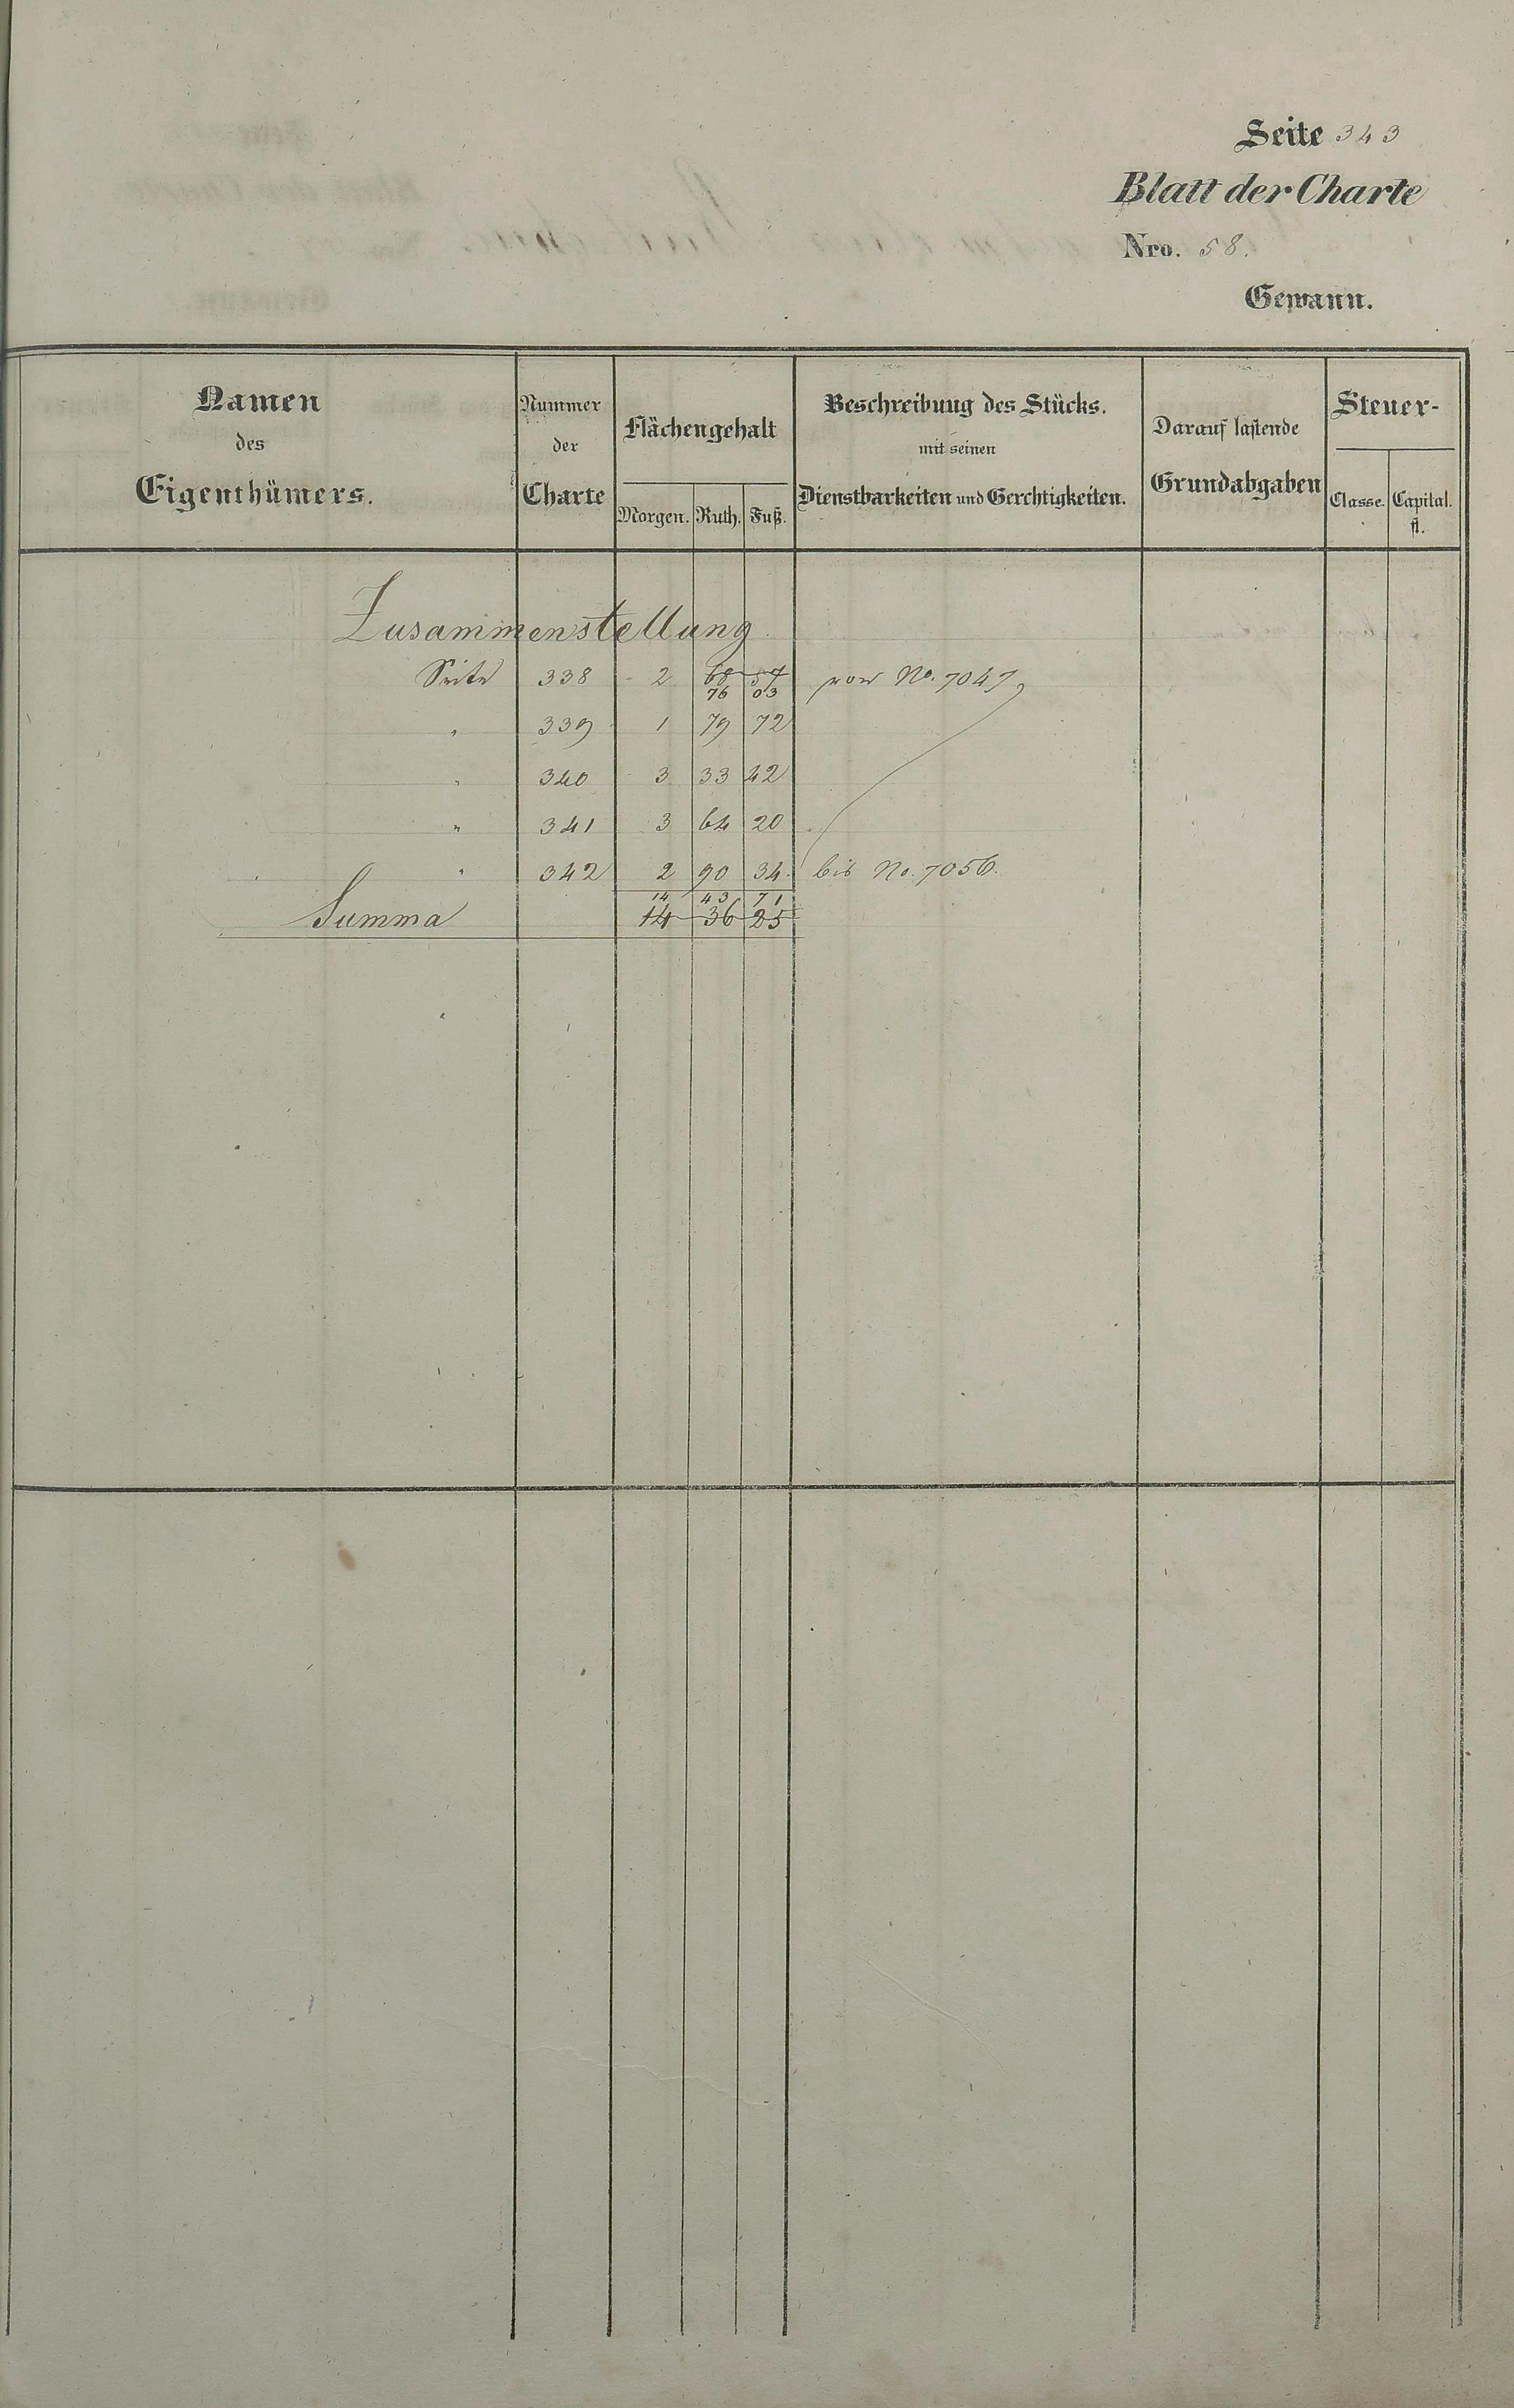 Seite 343
Blatt der Charte
Nro. 58.
Gewann.
Namen des Eigenthümers.
Nummer der Charte
Flächengehalt
Morgen. Ruth. Fuß.
Beschreibung des Stücks. mit seinen Dienstbarkeiten und Gerechtigkeiten.
Darauf lastende Grundabgaben
Steuer-
Classe. Capital. fl.
Zusammenstellung
Seite 338 2 68 57 von No. 7047
76 03
" 339 1 79 72
" 340 3 33 42
" 341 3 64 20
" 342 2 90 34. bis No. 7056.
14 43 71
Summa 14 36 25